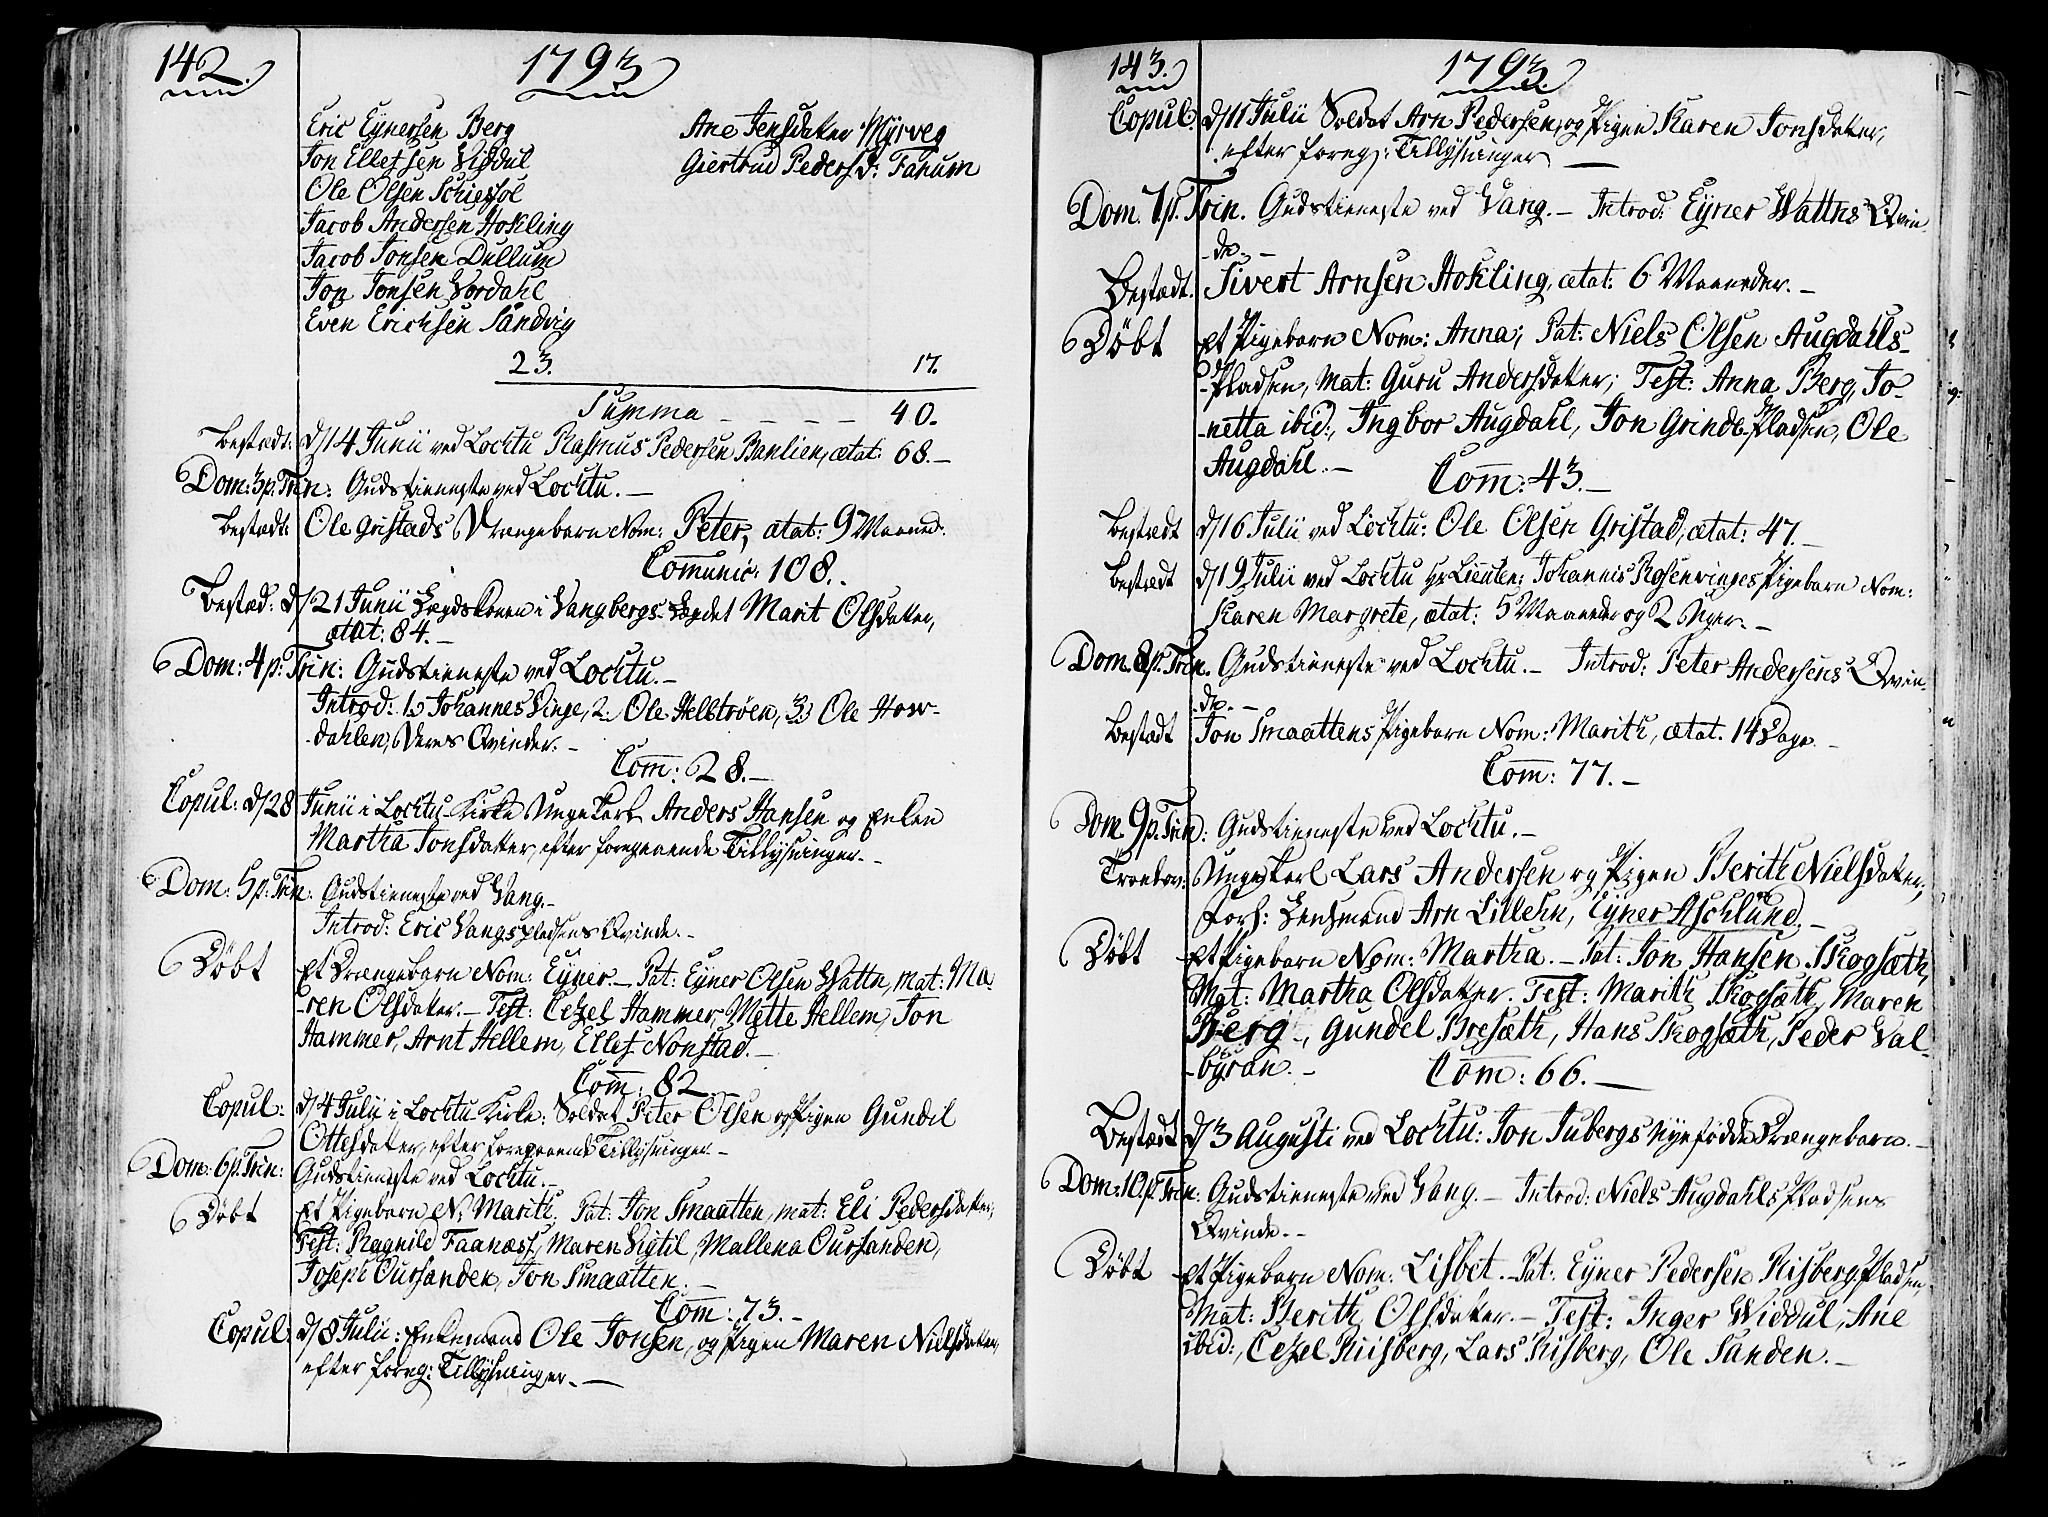 142.
1793
Eric Eynersen Berg
Jon Ellefsen Viddul
Ole Olsen Schiefsol
Jacob Andersen Hokling
Jacob Jonsen Dullum
Jon Jonsen Vordahl
Even Erichsen Sandvig
Ane Jensdater Myrveg
Giertrud Peders D: Fanum
23. 17.
Summa - - - - 40.
Bestædt: d/14 Junii ved Lochtu Rasmus Pedersen Banlien, ætat: 68.-
Dom: 3 p: Trin: Gudstieneste ved Lochtu.-
Bestædt: Ole Gristads Drængebarn Nom: Peter, ætat: 9 Maaned:
Comunic: 108.
Bestæd: d/21 Junii Lægdskonen i Vangbergs-Legdet Marit Olsdater,
ætat: 84.-
Dom: 4 p: Trin: Gudstieneste ved Lochtu.-
Introd: 1. Johannes Vinge, 2: Ole Helstrøen, 3: Ole How-
-dahlen, Veres Qvinder.-
Com: 28.-
Copul: d/28 Junii i Lochtu Kirke Ungekerl Anders Hansen og Enken
Martha Jonsdater, efter foregaaende Tillysninger.-
Dom: 5 p: Trin: Gudstieneste ved Vang.-
Introd: Eric Vangspladsens Qvinde.-
Döbt Et Drængebarn Nom: Eyner.- Pat: Eyner Olsen Wattn, mat: Ma-
-ren Olsdater.- Test: Cezel Hammer, Mette Hellem, Jon
Hammer, Arnt Hellem, Ellef Nonstad.-
Com: 82
Copul: d/4 Julii i Lochtu Kirke: Soldat Peter Olsen og Pigen Gundil
Ottesdater, efter foregaaende Tillysninger.-
Dom: 6 p: Trin: Gudstieneste ved Lochtu.-
Döbt Et Pigebarn N: Marith. Pat: Jon Smaatten, mat: Eli Pedersdater,
Test: Ragnild Faanæss, Maren Vigtil, Mallena Oursanden,
Joseph Oursanden, Jon Smaatten.-
Com: 73.-
Copul: d/8 Julii: Enkemand Ole Jonsen, og Pigen Maren Nielsdater,
efter foreg: Tillysninger.-
143.
1793.
Copul: d/11 Julii Soldat Arn Pedersen, og Pigen Karen Jonsdater,
efter foreg: Tillysninger -
Dom. 7 p. Trin. Gudstieneste ved Vang.- Introd: Eyner Wattns Qvin
-de.-
Bestædt. Sivert Arnsen Hokling, ætat: 6 Maaneder.-
Döbt Et Pigebarn Nom: Anna; Pat: Niels Olsen Augdahls-
-Pladsen, mat: Guru Andersdater; Test: Anna Berg, Jo-
-netta ibid:, Ingbor Augdahl, Jon Grindb-Pladsen, Ole
Augdahl.-
Com: 43.-
Bestædt d/16 Julii ved Lochtu: Ole Olsen Gristad, ætat: 47.-
Bestædt d/19 Julii ved Lochtu Hr Lieuten: Johannis Rosenvinges Pigebarn Nom:
Karen Margrete, ætat: 5 Maaneder og 2 Uger.-
Dom. 8 p. Trin. Gudstieneste ved Lochtu.- Introd: Peter Andersens Qvin-
de.-
Bestædt Jon Smaattens Pigebarn Nom: Marith, ætat. 14 Dage.-
Com: 77.-
Dom. 9 p. Trin: Gudstieneste ved Lochtu.-
Troelov: Ungekerl Lars Andersen og Pigen Berith Nielsdater,
Forl: Lensmand Arn Lillehn, Eyner Aschlund.-
Döbt Et Pigebarn Nom: Martha.- Pat: Jon Hansen Skogsæth,
Mat: Martha Olsdater. Test: Marith Skogsæth, Maren
Berg, Gundel Bresæth, Hans Skogsæth, Peder Val-
-byran.-
Com: 66.-
Bestædt d/3 Augusti ved Lochtu: Jon Tubergs Nyefödde Drængebarn.-
Dom: 10 p. Trin: Gudstieneste ved Vang.- Introd: Niels Augdahls Pladsens
Qvinde.-
Döbt Et Pigebarn Nom: Lisbet.- Pat: Eyner Pedersen Risberg Pladsen,
Mat: Berith Olsdater.- Test: Inger Widdul, Ane
ibid:, Cezel Riisberg, Lars Risberg, Ole Sanden.-